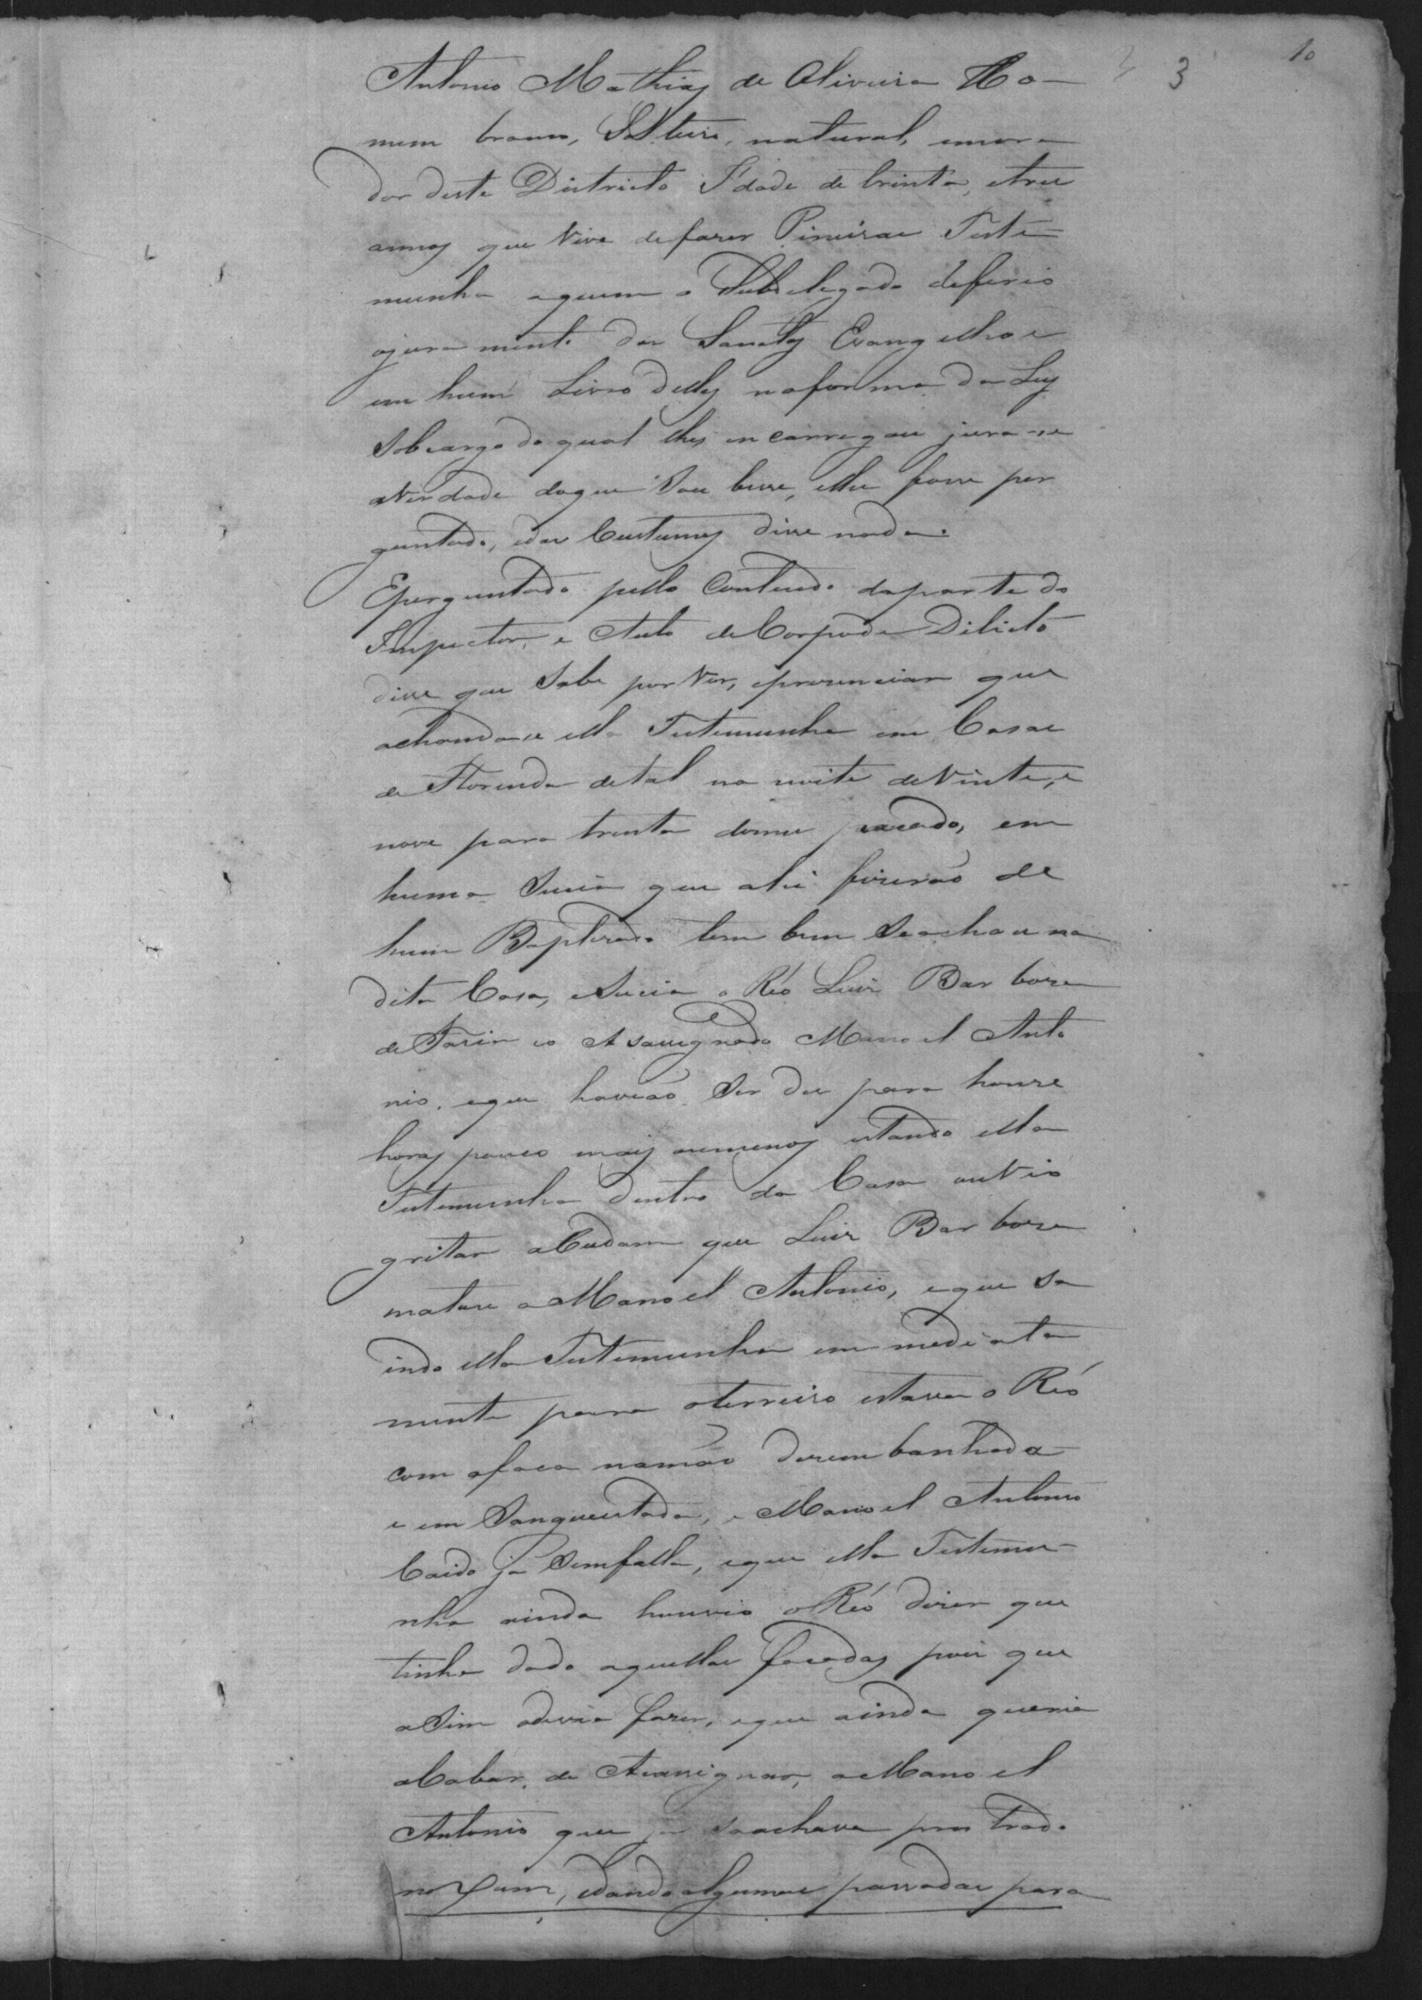 3 10
Antonio Mathias de Oliveira Ho-
mem branco, Solteiro, natural, emora-
dor deste Districto Idade de trinta, etres
annos que Vive defazer Pineiras Teste-
munha aquem o Subdelegado deferio
ojuramento dos Santos Evangelhos
em hum Livro delles naforma da Ley
Sobcargo do qual lhes encarregou jurase
aVerdade doque Soubese, elhe fosse per
guntado, edos Custumes disse nada.
Eperguntado pello Contheudo daparte do
Inspector, e Auto deCorpode Delicto
disse que Sabe por Ver, epresenciar que
achandose ella Testemunha em Casas
de Florinda detal na noite deVinte, e
nove para trinta domes passado, em
huma Sucia que ahi fizerão de
hum Baptizado tem bem Seachou na
dita Casa, eSucia o Réo Luiz Barboza
de Faria eo Asassignado Manoel Anto
nio, eque havião Ser dez para honze
horas pouco mais oumenos estando ella
Testemunha dentro da Casa ouVio
gritar aCudam que Luiz Barboza
matou a Manoel Antonio, eque sa
indo ella Testemunha emmediata
mente para oterreiro estava o Réo
com afaca namão dezembanhada
e emSanguentada, e Manoel Antonio
Caido já Semfalla, eque ella Testemu-
nha ainda houvio oRéo dizer que
tinha dado aquellas facadas pois que
aSim odevia fazer, eque ainda queria
aCabar de Asassignar, aManoel
Antonio que já seachava prostrado
no Xam, edando algumas passadas para